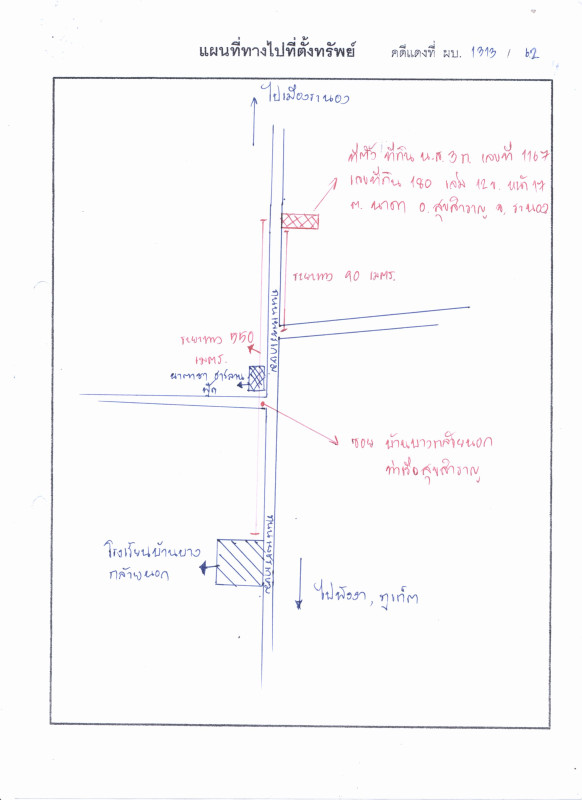 แผนที่ทางไปที่ตั้งทรัพย์ คดีแดงที่ ผบ. 1313 / 62
ไปเมืองระนอง
ที่ตั้ง ที่ดิน น.ส. 3 ก เลขที่ 1167
เลขที่ดิน 180 เล่ม 12 ข. หน้า 17
ต. นาคา อ. สุขสำราญ จ. ระนอง
ระยะทาง 90 เมตร.
ถนนเพชรเกษม
ระยะทาง 550
เมตร.
ซอย บ้านบางกล้วยนอก
ท่าเรือสุขสำราญ
ถนนเพชรเกษม
โรงเรียนบ้านบาง
กล้วยนอก
ไปพังงา, ภูเก็ต